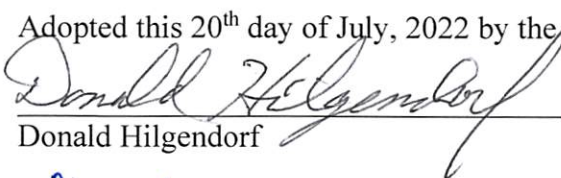 Adopted this 20th day of July, 2022 by the
Donald Hilgendorf
Donald Hilgendorf